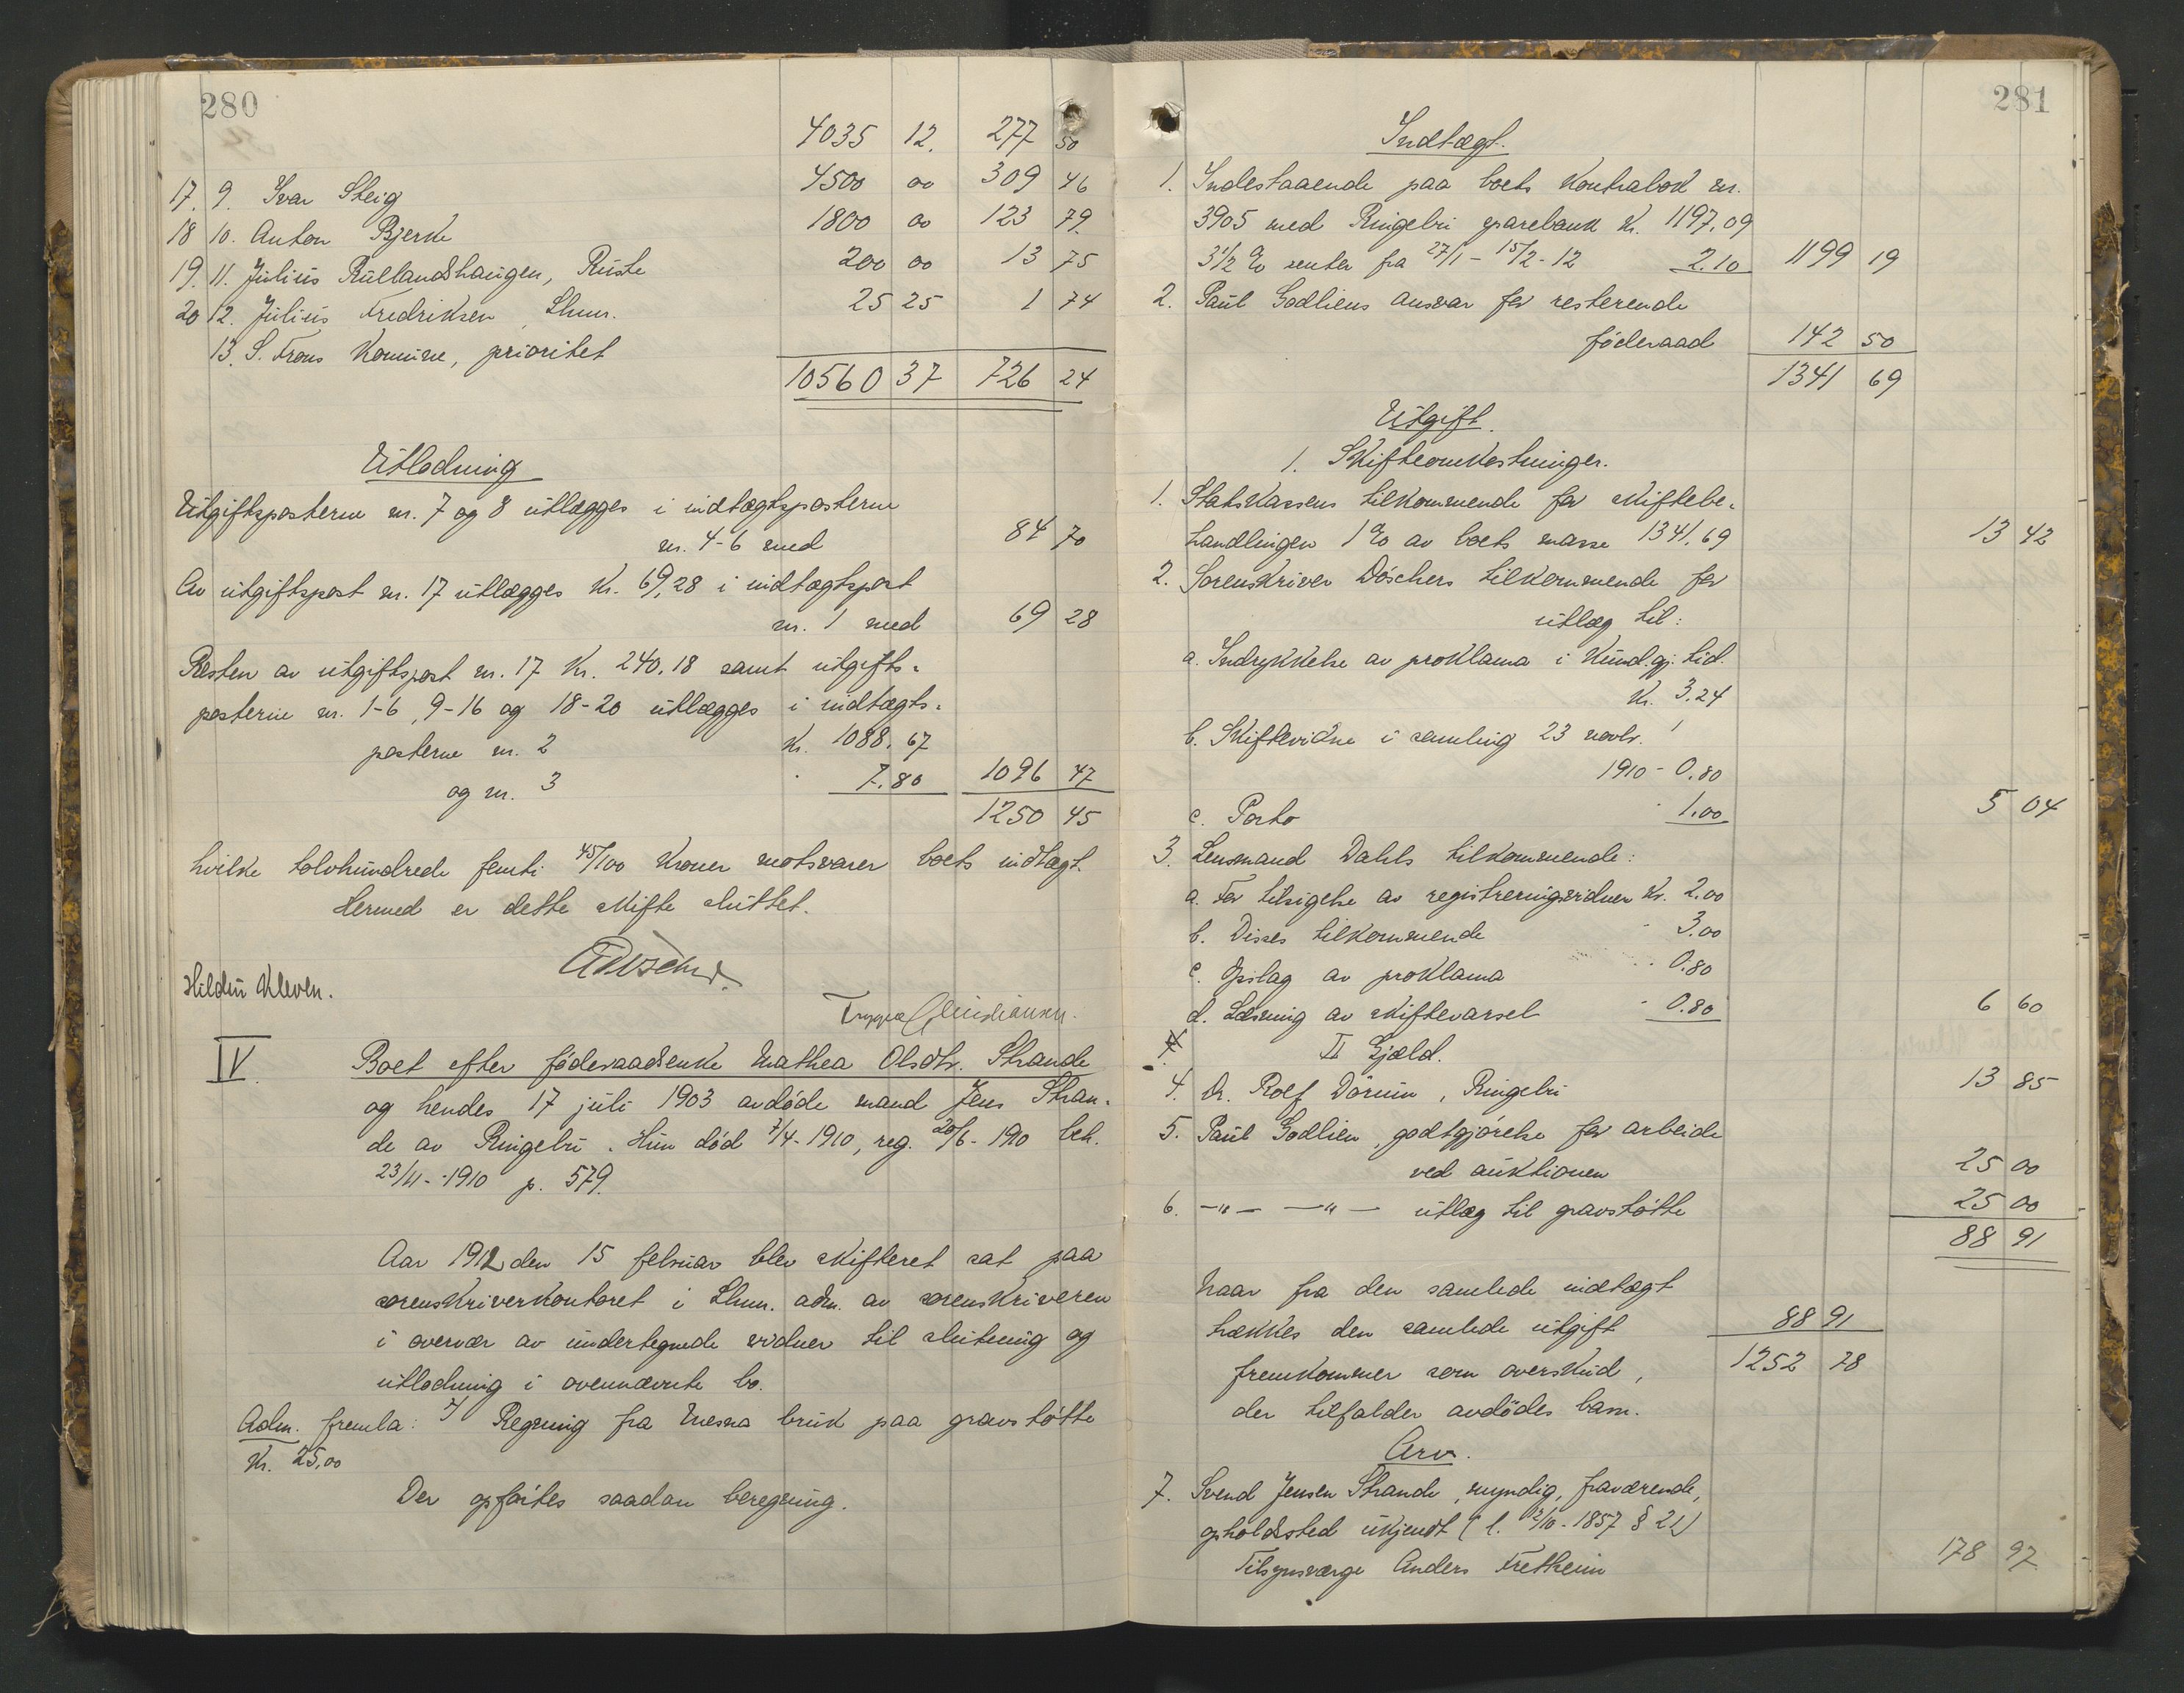 280
4035 12. 277 50
17. 9. Ivar Steig 4500 00 309 46
18 10. Anton Bjerke 1800 00 123 79
19. 11. Julius Rullandshaugen, Ruste 200 00 13 75
20 12. Julius Fredriksen, Lhmr. 25 25 1 74
13. S. Frons Kommune, prioritet
10560 37 726 24
Utlodning
Utgiftsposterne nr. 7 og 8 utlægges i indtægtsposterne
nr. 4-6 med 84 70
Av utgiftspost nr. 17 utlægges Kr. 69,28 i indtægtspost
nr. 1 med 69 28
Resten av utgiftspost nr. 17 Kr. 240.18 samt utgifts-
posterne nr. 1-6, 9-16 og 18-20 utlægges i indtægts-
posterne nr. 2 Kr. 1088.67
og nr. 3 7.80 1096 47
1250 45
hvilke tolvhundrede femti 45/100 Kroner motsvarer boets indtægt.
Hermed er dette skifte sluttet.
Døscher
Hildur Kleven.
Trygve Christiansen.
IV. Boet efter føderaadsenke Mathea Olsdtr. Strande
og hendes 17 juli 1903 avdøde mand Jens Stran-
de av Ringebu. Hun død 7/4-1910, reg. 20/6-1910 beh.
23/11-1910 p. 579.
Aar 1912 den 15 februar blev skifteret sat paa
sorenskriverkontoret i Lhmr. adm. av sorenskriveren
i overvær av undertegnede vidner til slutning og
utlodning i ovennævnte bo.
Adm. fremla: Regning fra Mesna bruk paa gravstøtte
Kr. 25,00
Der opførtes saadan beregning.
281
Indtægt.
1. Indestaaende paa boets Kontrabok nr.
3905 med Ringebu sparebank Kr. 1197,09
3 1/2 % renter fra 27/1-15/2-12 2.10 1199 19
2. Paul Godliens ansvar for resterende
føderaad 142 50
1341 69
Utgift.
1. Skifteomkostninger.
1. Statskassens tilkommende for skiftebe-
handlingen 1% av boets masse 1341.69 13 42
2. Sorenskriver Döschers tilkommende for
utlæg til:
a. Indrykkelse av proklama i Kund.gj. tid.
Kr. 3.24
b. Skiftevidne i samling 23 novbr.
1910 - 0.80
c. Porto 1.00 5 04
3. Lensmand Dahls tilkommende:
a. For tilsigelse av registreringsvidner Kr. 2.00
b. Disses tilkommende - 3.00
c. Opslag av proklama - 0.80
d. Læsning av skiftevarsel - 0.80 6 60
II Gjæld.
4. Dr. Rolf Dörum, Ringebu 13 85
5. Paul Godlien, godtgjörelse for arbeide
ved auktionen 25 00
6. -"- -"- utlæg til gravstøtte 25 00
88 91
Naar fra den samlede indtægt
trækkes den samlede utgift 88 91
fremkommer som overskud, 1252 78
der tilfalder avdödes barn.
Arv.
7. Svend Jensen Strande, myndig, fraværende,
opholdssted ukjendt (l. 12/10-1857 § 21)
Tilsynsværge Anders Fretheim 178 97